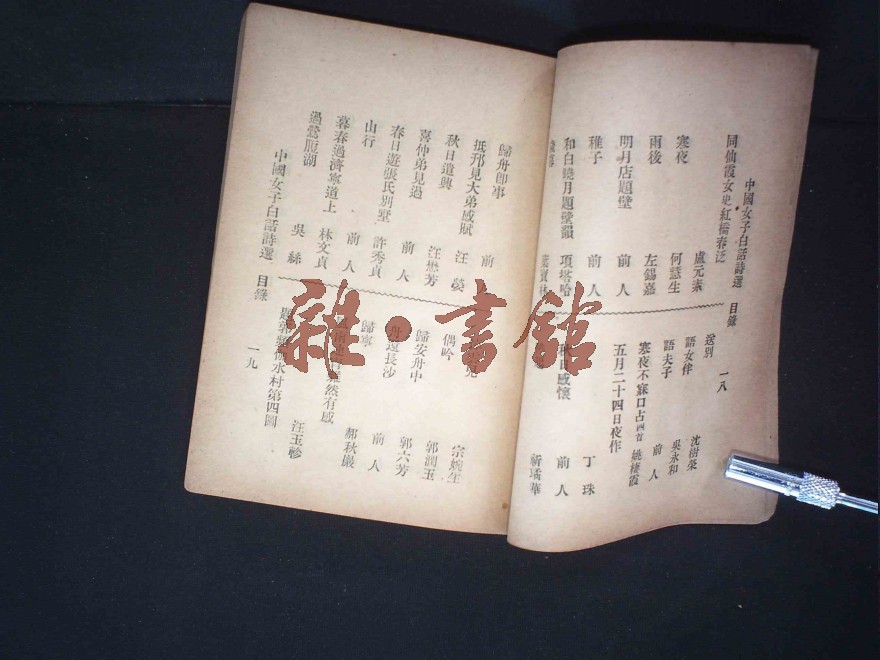 中國女子白話詩選 目錄 一八
同仙霞女史紅橋春泛 盧元素
寒夜 何慧生
雨後 左錫嘉
明月店題壁 前人
稚子 前人
和白曉月題壁韻 項塔哈
送別 沈樹榮
語女伴 吳永和
語夫子 前人
寒夜不寐口占四首 姚棲霞
五月二十四日夜作 丁珠
感懷 前人
祈璚華
歸舟即事 前
抵邗見大弟感賦 汪嫈
秋日遣興 汪懋芳
喜仲弟見過 前人
春日遊張氏別墅 許秀貞
山行 前人
暮春過濟寧道上 林文貞
過鶯脰湖 吳絲
偶吟 宗婉生
歸安舟中 郭潤玉
舟還長沙 郭六芳
歸寧 前人
然有感 郝秋巖
水村第四圖 汪玉軫
中國女子白話詩選 目錄 一九
雜·書館